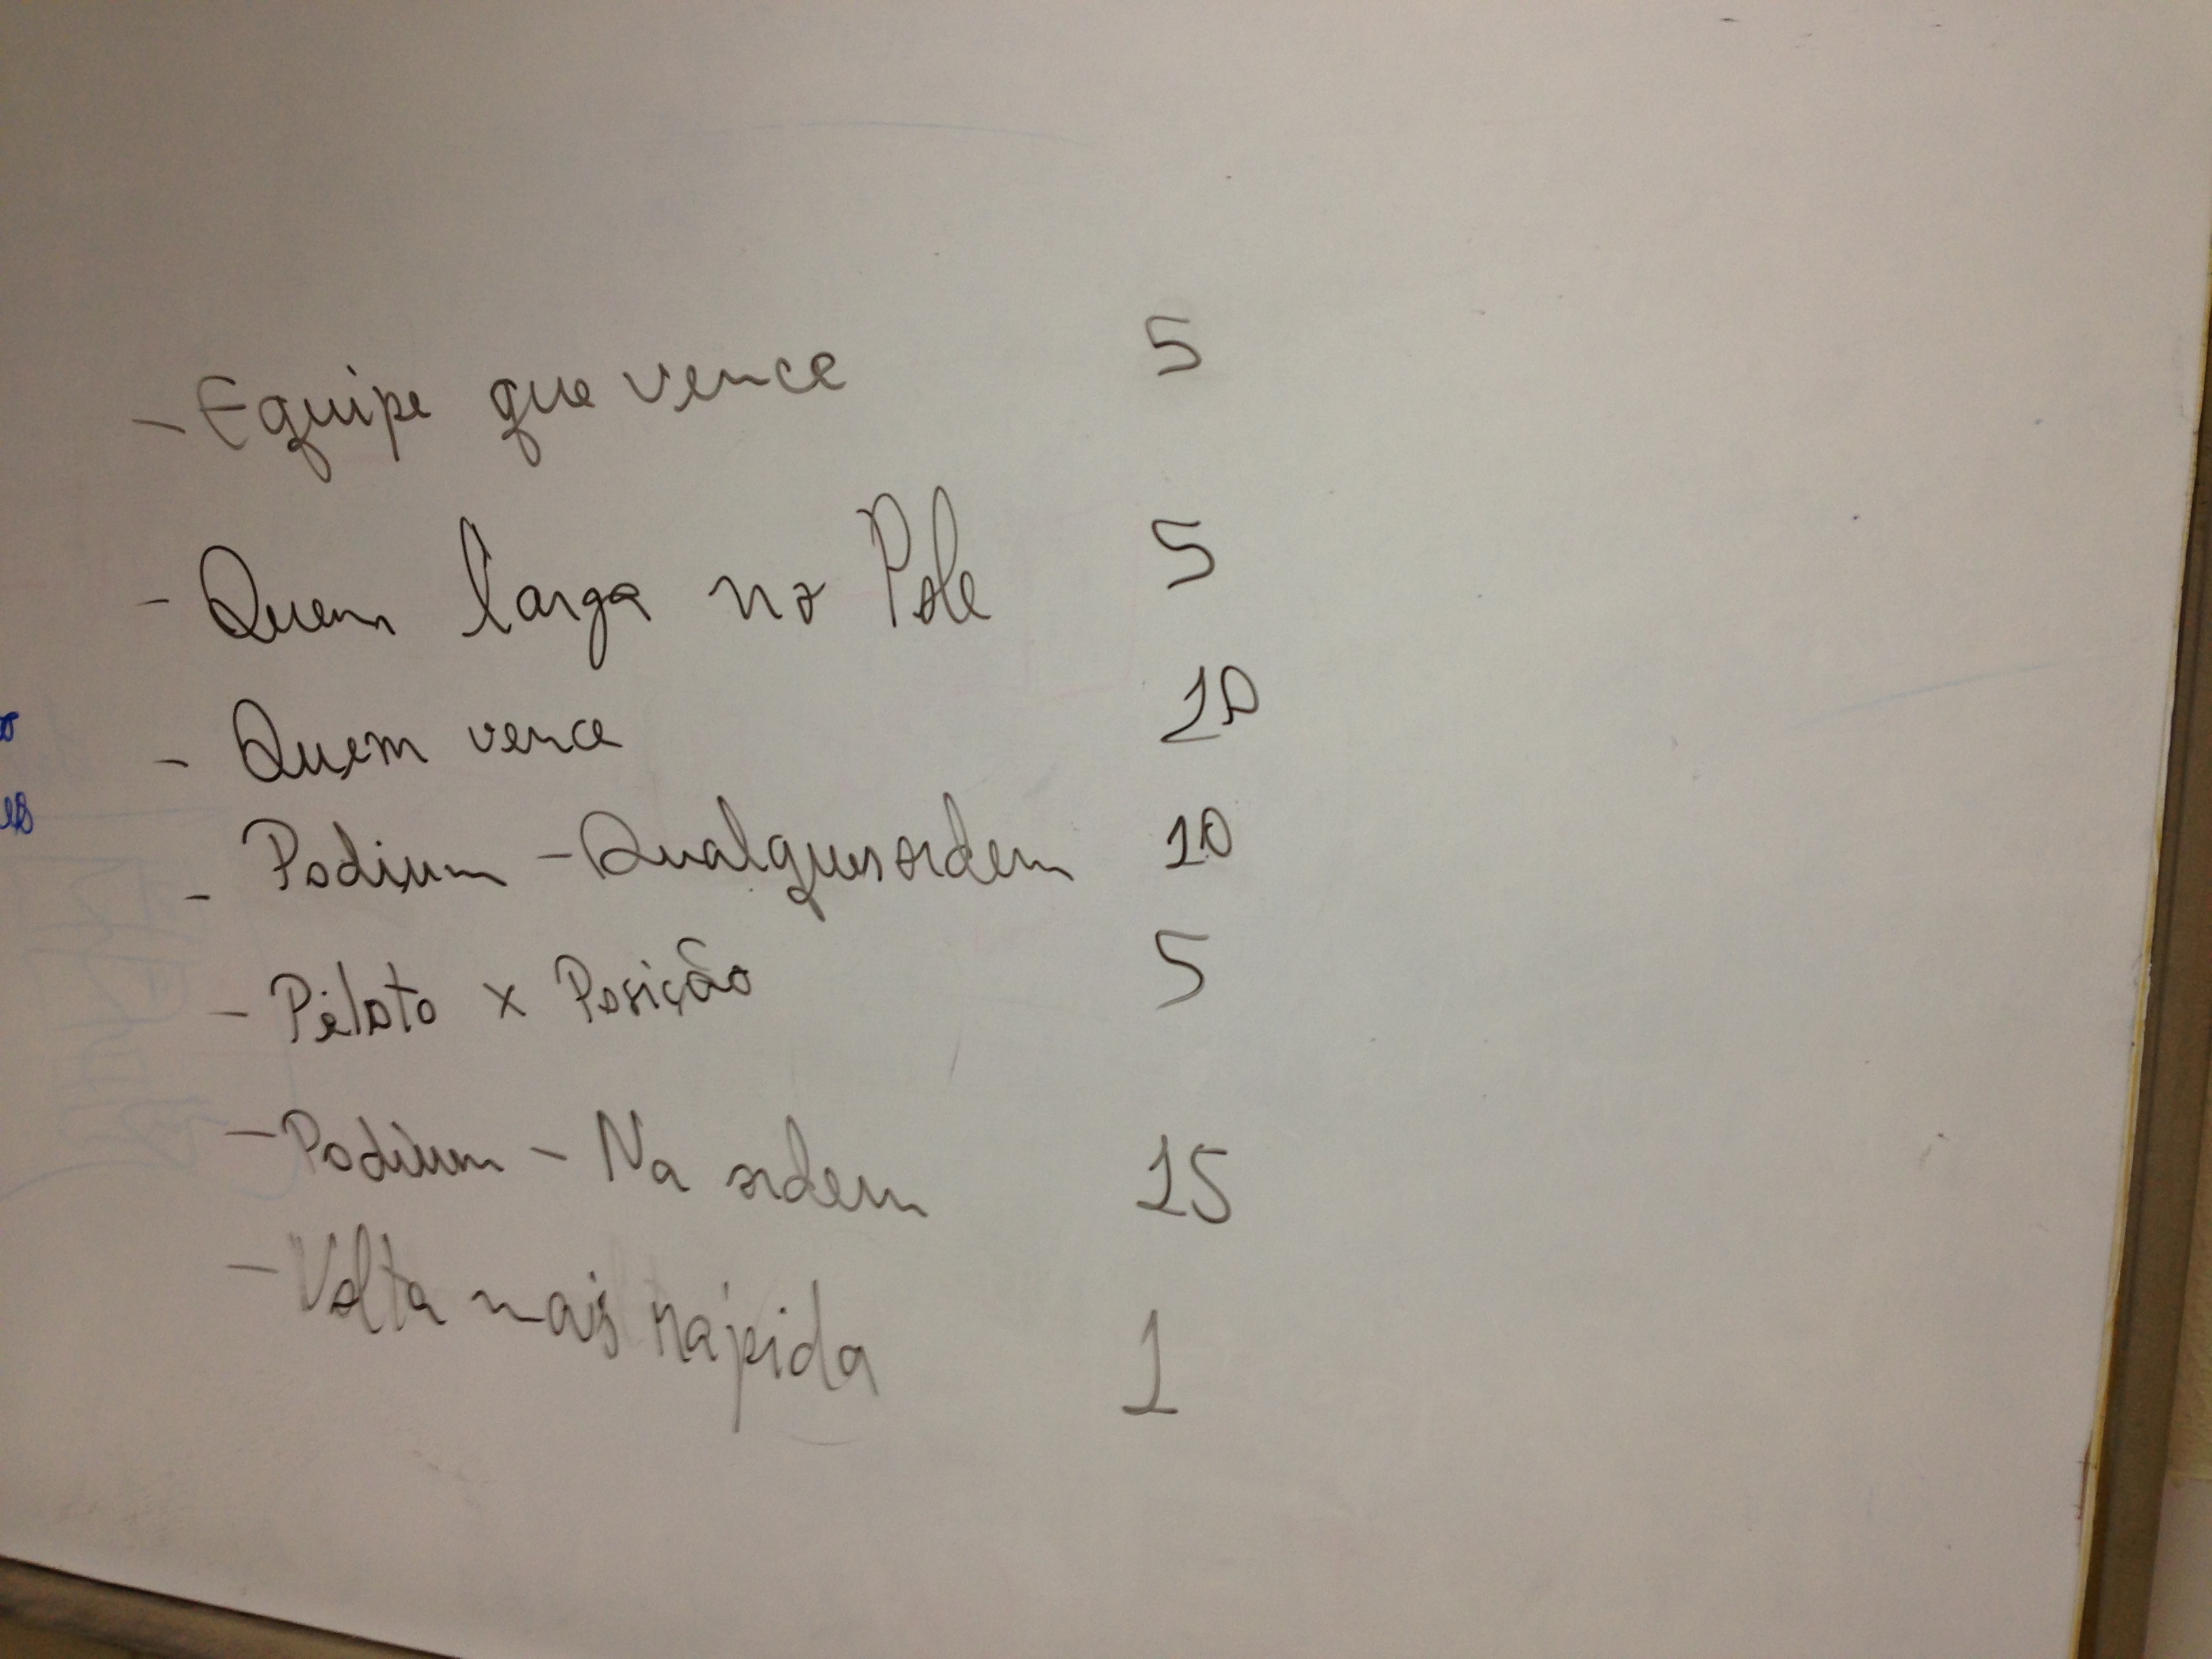 - Equipe que vence 5
- Quem larga no Pole 5
- Quem vence 10
- Podium - Qualquer ordem 10
- Piloto x Posição 5
- Podium - Na ordem 15
- Volta mais rápida 1